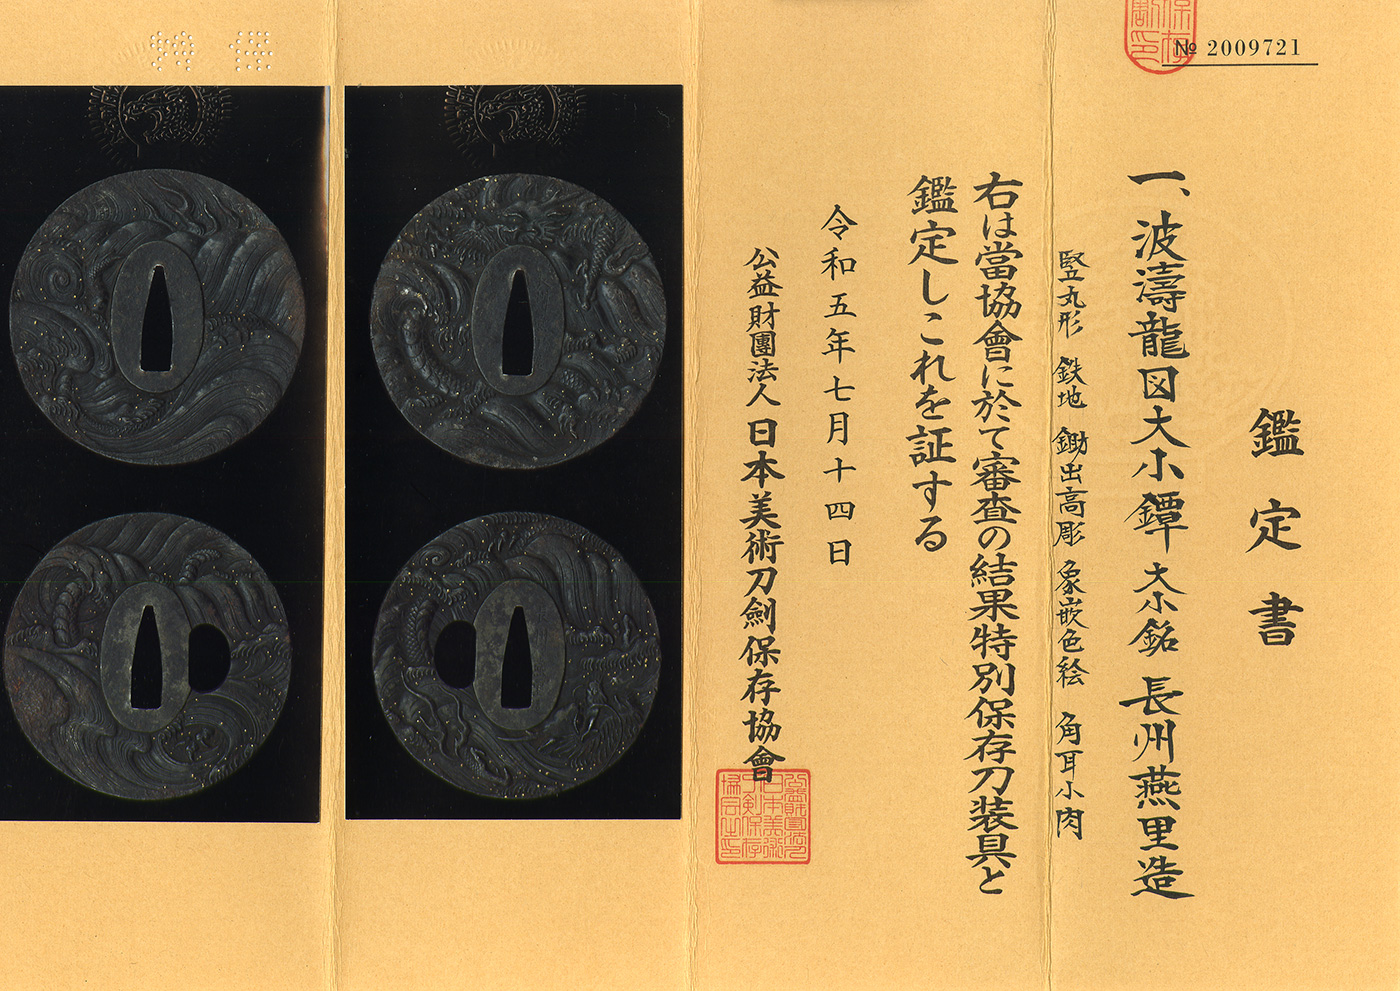 № 2009721
鑑定書
一、波濤龍図大小鐔 大小銘 長州燕里造
竪丸形 鉄地 鋤出高彫 象嵌色絵 角耳小肉
右は當協會に於て審査の結果特別保存刀装具と
鑑定しこれを証する
令和五年七月十四日
公益財團法人日本美術刀劍保存協會